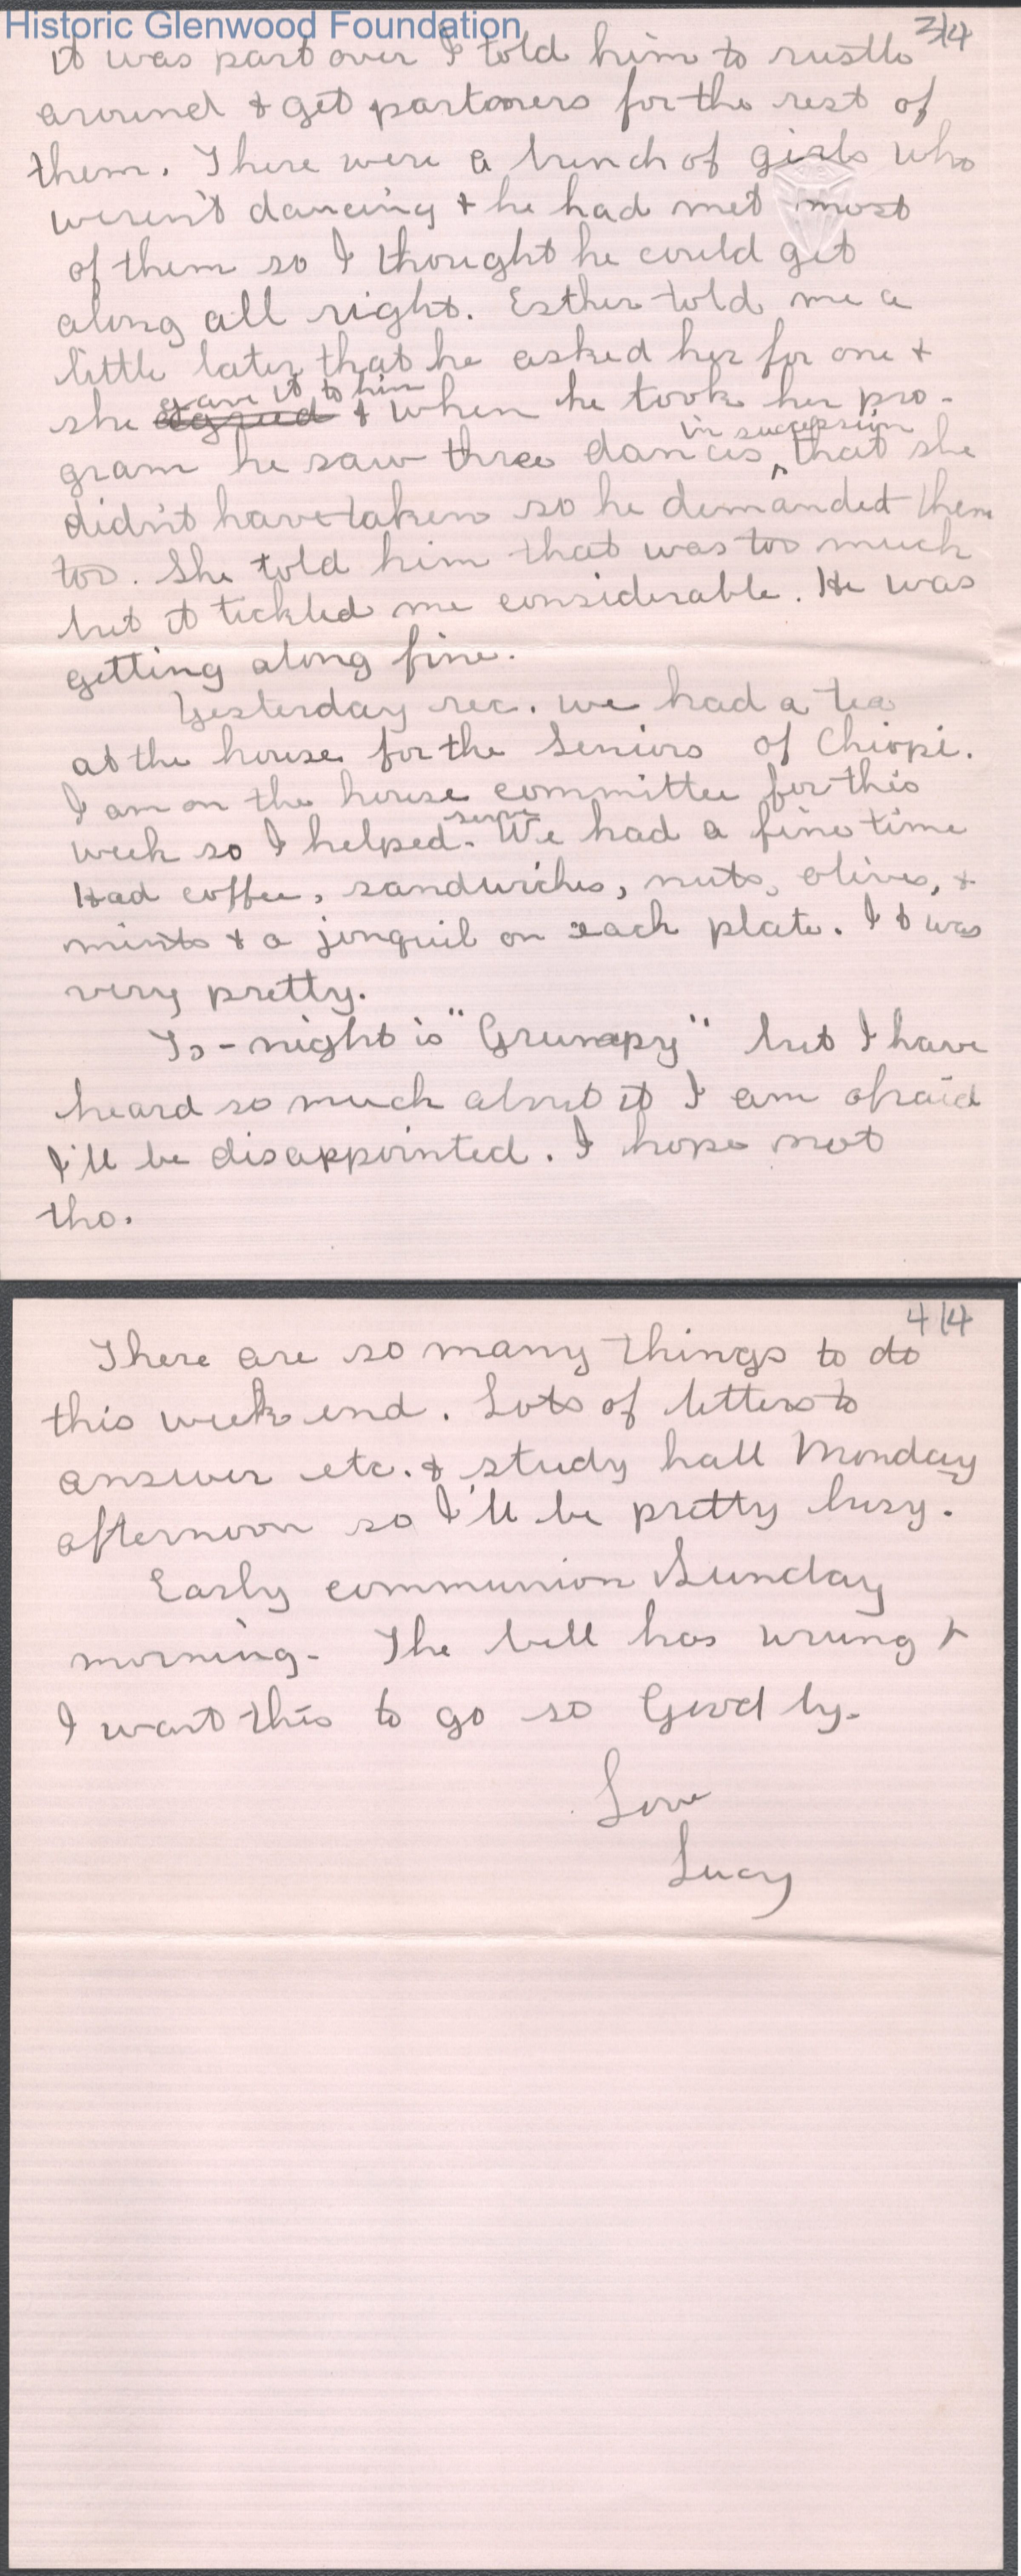 Historic Glenwood Foundation
3/4
it was part over I told him to rustle
around & get partners for the rest of
them. There were a bunch of girls who
weren't dancing & he had met most
of them so I thought he could get
along all right. Esther told me a
little later that he asked her for one &
gave it to him
she agreed & when he took her pro-
in succession
gram he saw three dances ^ that she
didn't have taken so he demanded them
too. She told him that was too much
but it tickled me considerable. He was
getting along fine.
Yesterday rec. we had a tea
at the house for the Seniors of Chiopi.
I am on the house committee for this
serve
week so I helped. We had a fine time
Had coffee, sandwiches, nuts, olives, &
mints & a jonquil on each plate. It was
very pretty.
To-night is "Grumpy" but I have
heard so much about it I am afraid
I'll be disappointed. I hope not
tho.
4/4
There are so many things to do
this week end. Lots of letters to
answer etc. & study hall Monday
afternoon so I'll be pretty busy.
Early communion Sunday
morning. The bell has wrung &
I want this to go so Good by.
Love
Lucy